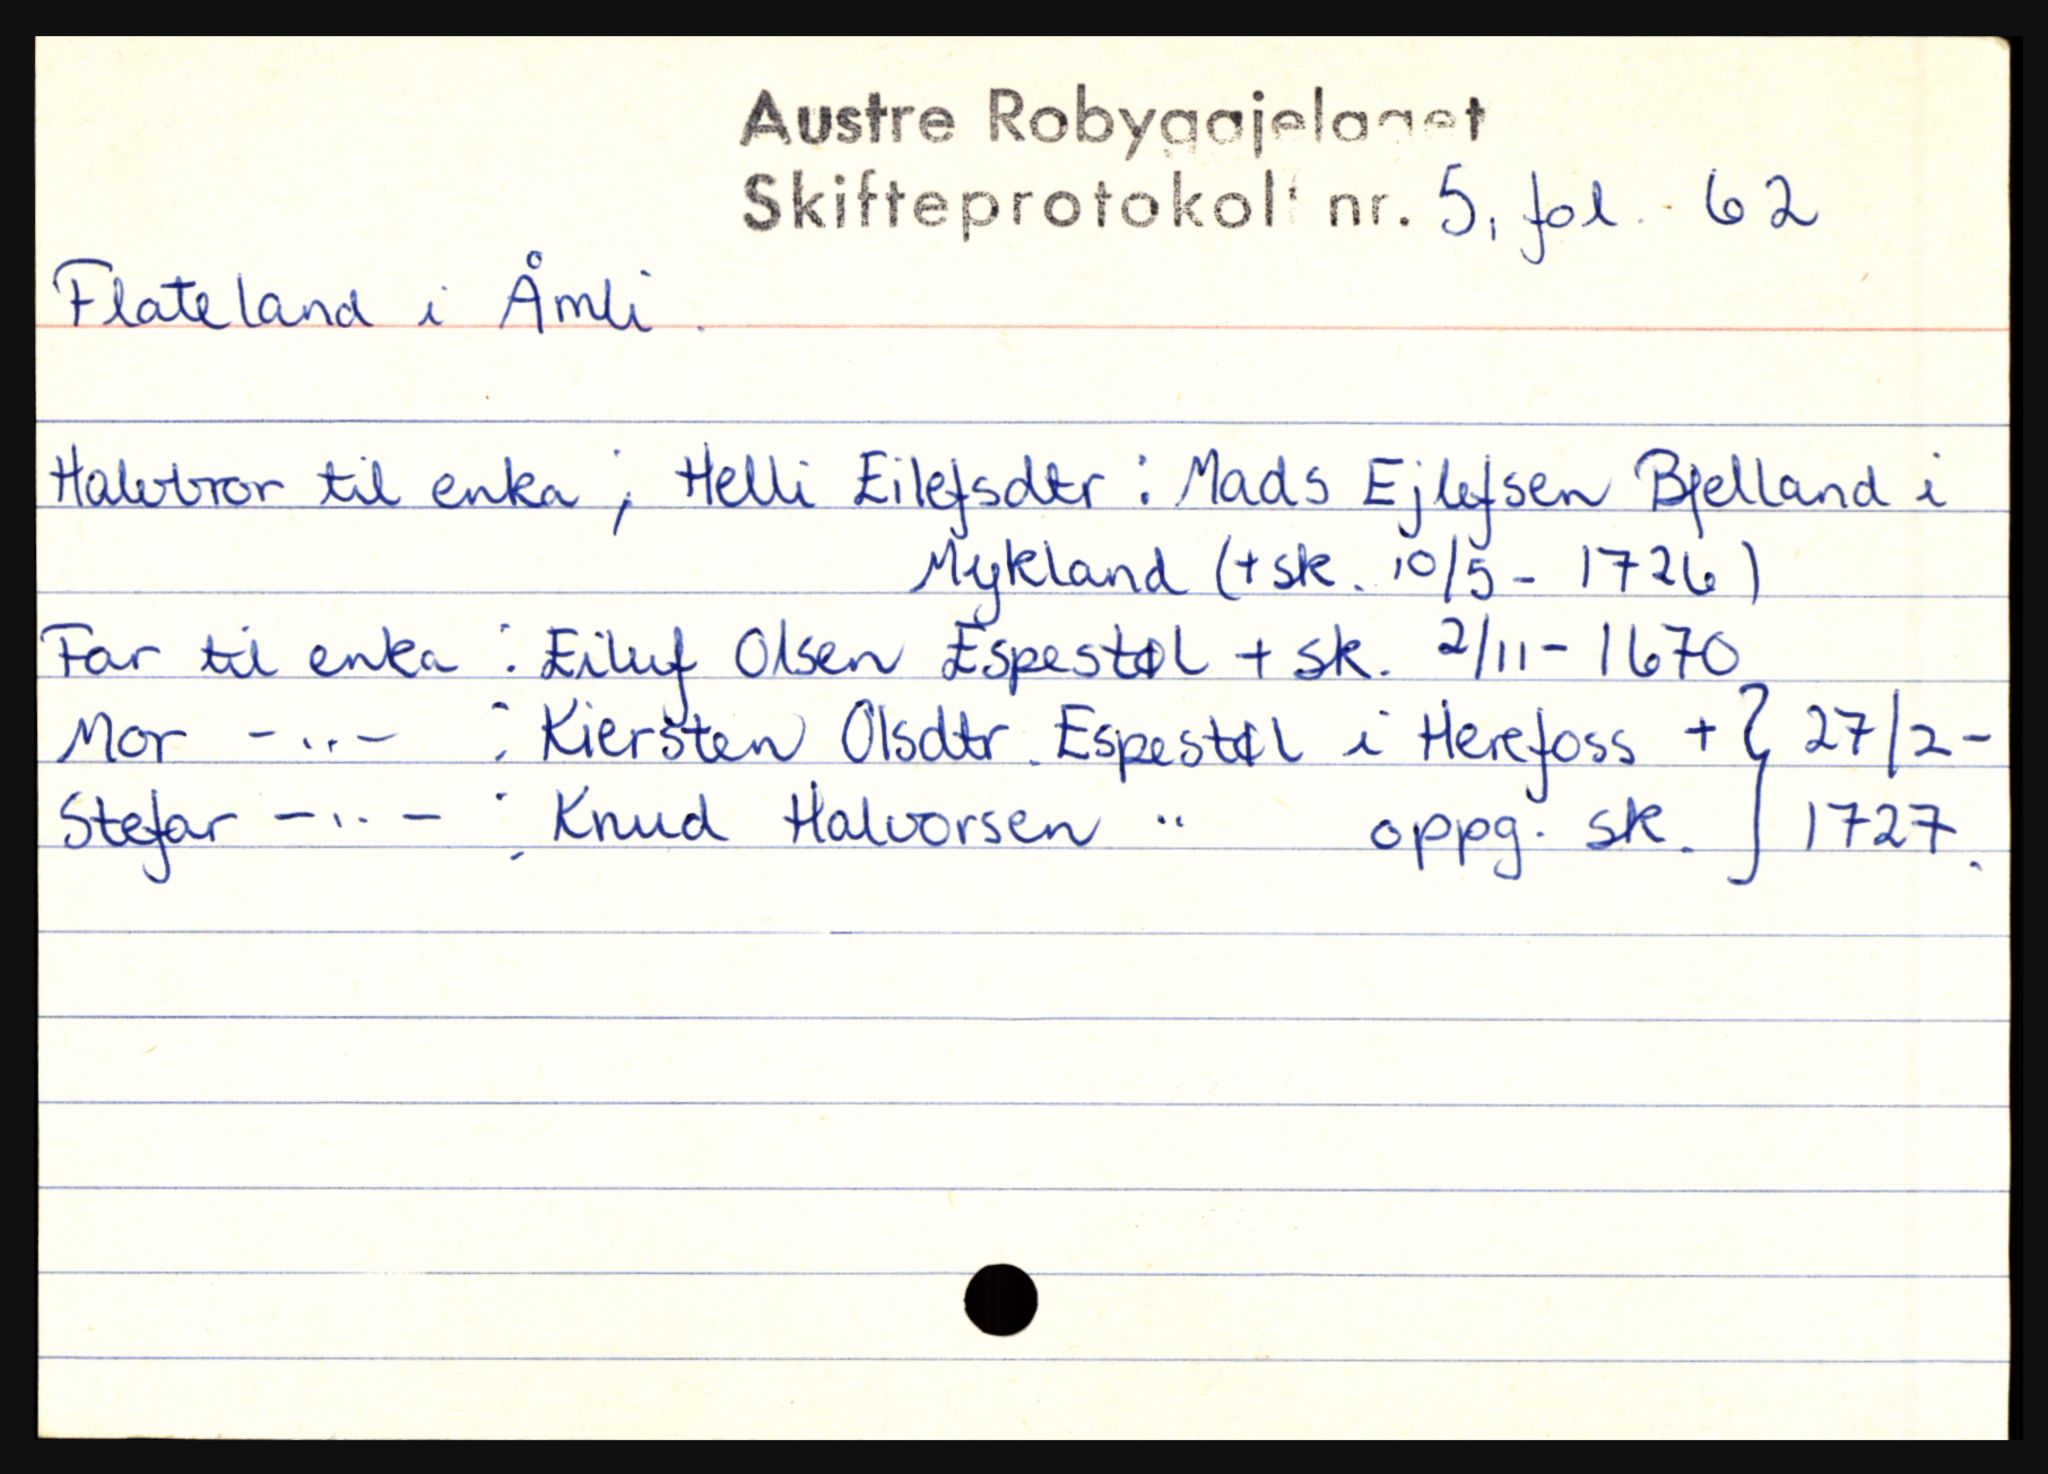 Austre Robyggjelaget
Skifteprotokoll nr. 5, fol. 62
Flateland i Åmli.
Halvbror til enka ; Helli Eilefsdtr : Mads Ejlefsen Bjelland i
Mykland (+ sk. 10/5 - 1726)
Far til enka : Eiluf Olsen Espestøl + sk. 2/11 - 1670
Mor - .. - : Kiersten Olsdtr. Espestøl i Herefoss + } 27/2 -
Stefar - .. - : Knud Halvorsen " oppg. sk. } 1727.